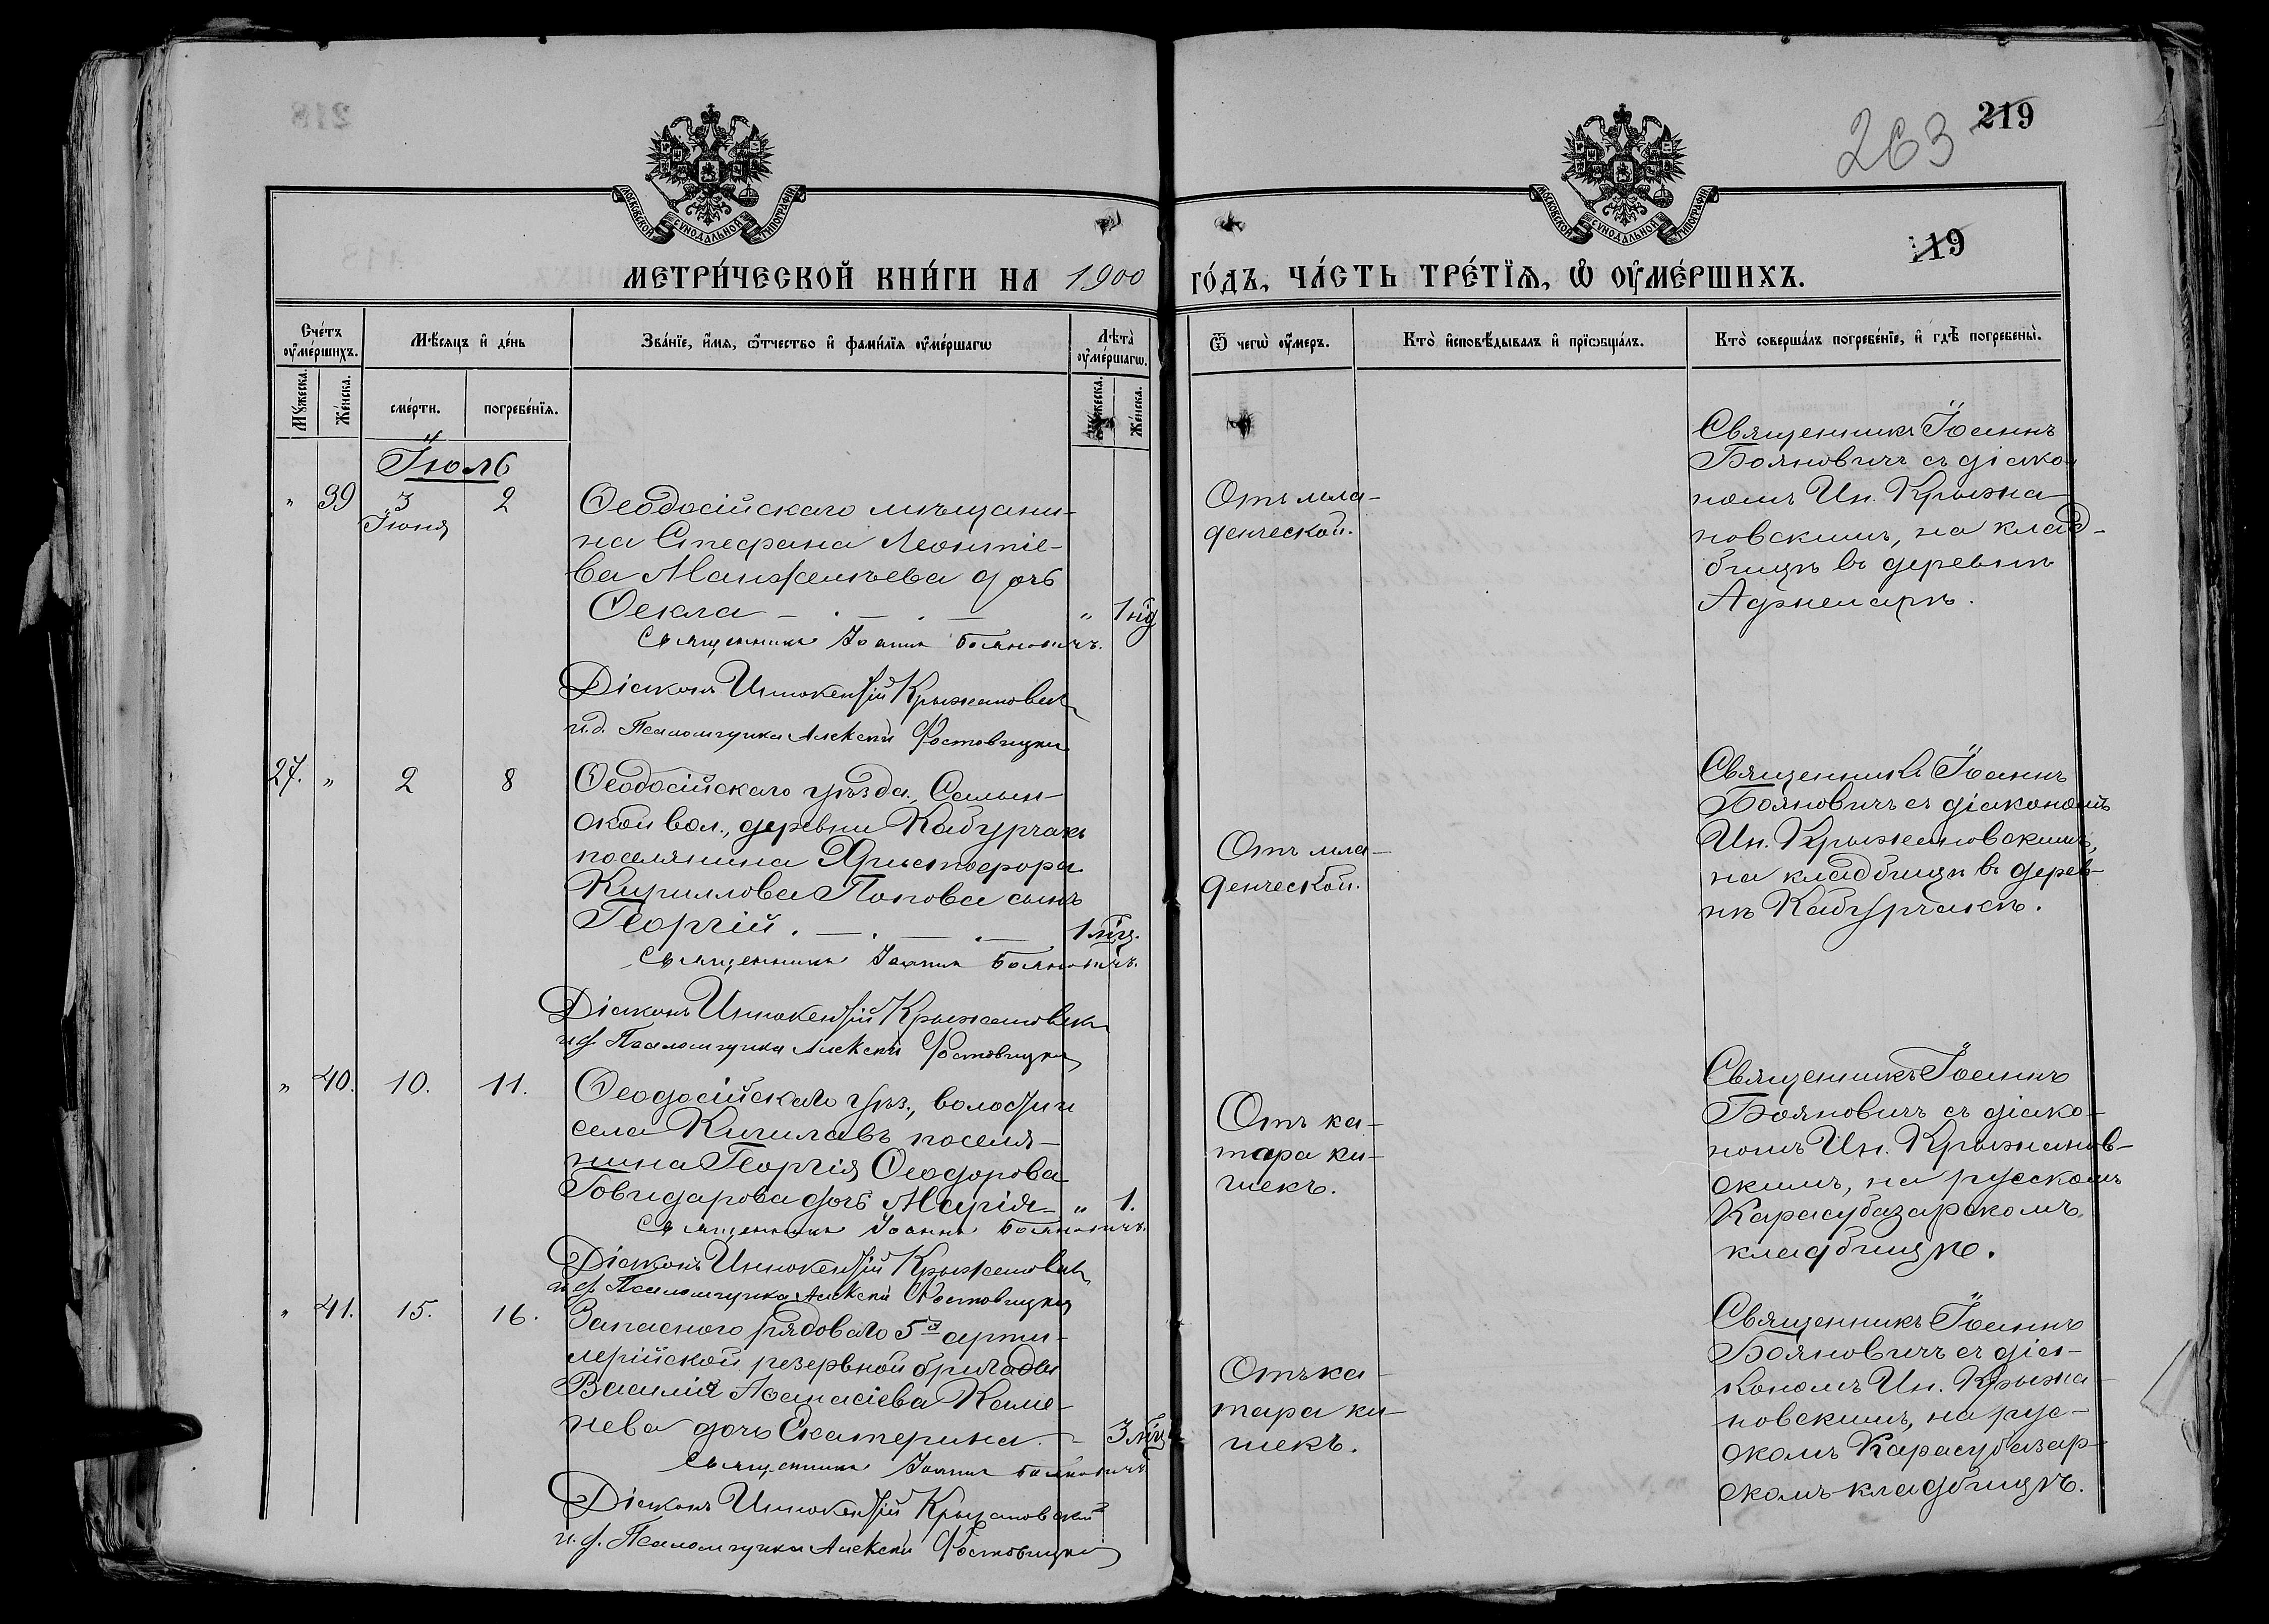 219
263
119
МОСКОВСКОЙ СѴНОДАЛЬНОЙ ТИПОГРАФІИ
МОСКОВСКОЙ СѴНОДАЛЬНОЙ ТИПОГРАФІИ
МЕТРИ́ЧЕСКОЙ КНИ́ГИ НА 1900 ГО́ДЪ, ЧА́СТЬ ТРЕ́ТЇѦ, Ѡ҆ ОУ҆МЕ́РШИХЪ.
Сче́тъ оу҆ме́ршихъ.
Мѣ́сяцъ и҆ де́нь
Зва́нїе, и҆́мя, ѻ҆́тчество и҆ фами́лїя оу҆ме́ршагѡ
Лѣта̀ оу҆ме́ршагѡ.
Ѿ чегѡ̀ оу҆́меръ.
Кто̀ и҆сповѣ́дывалъ и҆ прїѡбща́лъ.
Кто̀ соверша́лъ погребе́нїе, и҆ гдѣ̀ погребены̀.
Мꙋ́жеска.
Же́нска.
сме́рти.
погребе́нїя.
Мꙋ́жеска.
Же́нска.
Іюль
" 39 3 Іюня 2
Ѳеодосійскаго мѣщани-
на Стефана Леонтіе-
ва Манжелѣева дочь
Ѳекла — . — . — " 1 нд
Священникъ Іоаннъ Бояновичъ.
Діаконъ Иннокентій Крыжановск
и.д. Псаломщика Алексѣй Ростовицкій
Отъ мла-
денческой.
Священникъ Іоаннъ
Бояновичъ съ діако-
номъ Ин. Крыжа-
новскимъ, на клад-
бищѣ въ деревнѣ
Аджеларѣ.
27. " 2 8
Ѳеодосійскаго уѣзда, Салын-
ской вол., деревни Кабурчакъ
поселянина Христофора
Кириллова Попова сынъ
Георгій . — . — . — 1 мц.
Священникъ Іоаннъ Бояновичъ.
Діаконъ Иннокентій Крыжановск
и.д. Псаломщика Алексѣй Ростовицкій
Отъ мла-
денческой.
Священникъ Іоаннъ
Бояновичъ съ діакономъ
Ин. Крыжановскимъ,
на кладбищѣ въ дерев-
нѣ Кабурчакѣ.
" 40. 10. 11.
Ѳеодосійскаго уѣз., волости и
села Кишлавъ поселя-
нина Георгія Ѳеодорова
Говидарова дочь Марія — " 1.
Священникъ Іоаннъ Бояновичъ.
Діаконъ Иннокентій Крыжановск
и.д. Псаломщика Алексѣй Ростовицкій
Отъ ка-
тара ки-
шекъ.
Священникъ Іоаннъ
Бояновичъ съ діако-
номъ Ин. Крыжанов-
скимъ, на русскомъ
Карасубазарскомъ
кладбищѣ.
" 41. 15. 16.
Запасного рядоваго 5й арти-
лерійской резервной бригады
Василія Аѳанасіева Каме-
нева дочь Екатерина — 3 мц
Священникъ Іоаннъ Бояновичъ
Діаконъ Иннокентій Крыжановский
и.д. Псаломщика Алексѣй Ростовицкій
Отъ ка-
тара ки-
шекъ.
Священникъ Іоаннъ
Бояновичъ съ діа-
кономъ Ин. Крыжа-
новскимъ, на рус-
скомъ Карасубазар-
скомъ кладбищѣ.